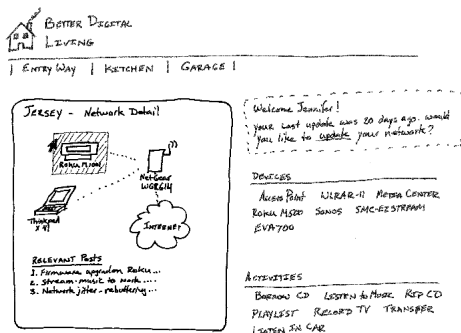 BETTER DIGITAL
LIVING
| ENTRY WAY | KITCHEN | GARAGE |
JERSEY - Network Detail
Roku
NetGear
WGR614
Thinkpad
INTERNET
RELEVANT Posts
1. Firmware upgrade on Roku...
2. Stream-music to work....
3. Network jitter-rebuffering...
Welcome Jennifer!
your last update was 20 days ago. would
you like to update your network?
DEVICES
Access Point WiRAR-11 MEDIA CENTER
Roku M500 SONOS SMC-EZSTREAM
EVA700
ACTIVITIES
BORROW CD LISTEN to MUSIC RIP CD
PLAYLIST RECORD TV TRANSFER
LISTEN IN CAR